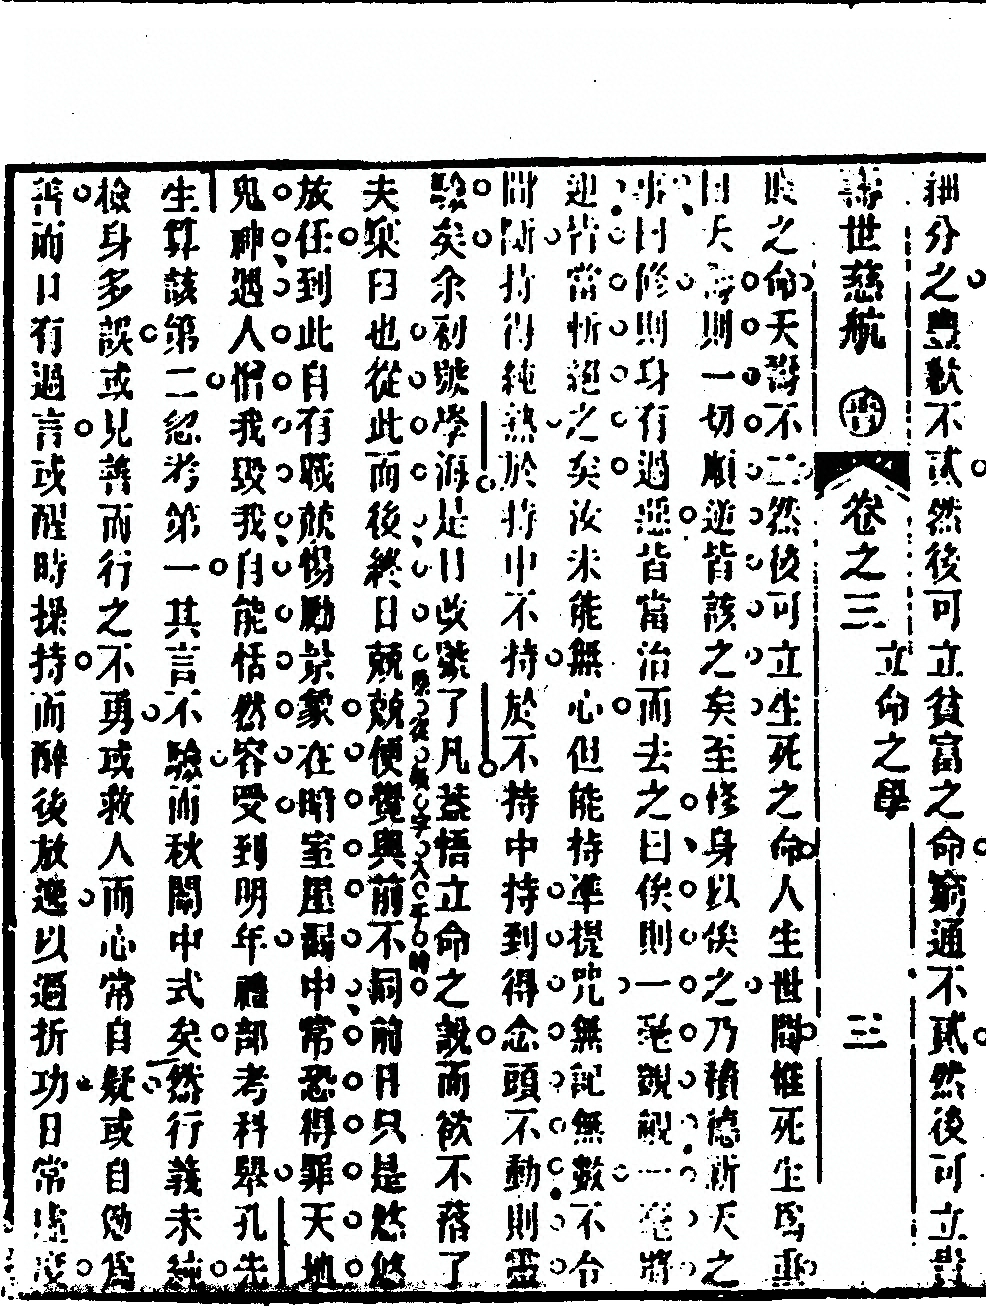 細分之豐歉不貳然後可立貧富之命窮通不貳然後可立貴
壽世慈航 卷之三 立命之學 三
賤之命夭壽不二然後可立生死之命人生世間惟死生為重
曰夭壽則一切順逆皆該之矣至修身以俟之乃積德祈天之
事曰修則身有過惡皆當治而去之曰俟則一毫覬覦一毫將
迎皆當斬絕之矣汝未能無心但能持準提咒無記無數不令
間斷持得純熟於持中不持於不持中持到得念頭不動則靈
驗矣余初號學海是日改號了凡蓋悟立命之說而欲不落了
夫窠臼也從此而後終日兢兢便覺與前不同前日只是悠悠
放任到此自有戰兢惕勵景象在暗室屋漏中常恐得罪天地
鬼神遇人憎我毀我自能恬然容受到明年禮部考科舉孔先
生算該第二忽考第一其言不驗而秋闈中式矣然行義未純
檢身多誤或見善而行之不勇或救人而心常自疑或自勉為
善而口有過言或醒時操持而醉後放逸以過折功日常虛度